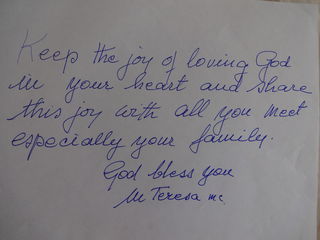 Keep the joy of loving God
in your heart and share
this joy with all you meet
especially your family.
God bless you
M Teresa mc